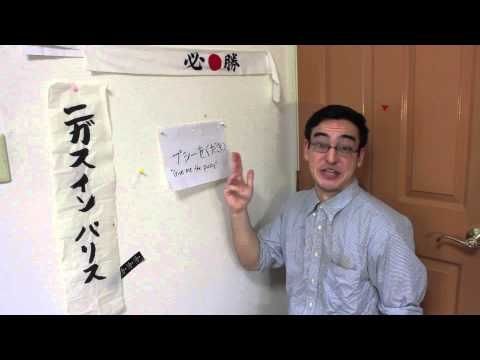 必勝
ニガスインパリス
プシーをください
"Give me the pussy"